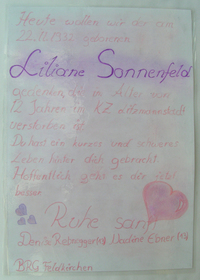 Heute wollen wir der am
22.11.1932 geborenen
Liliane Sonnenfeld
gedenken, die im Alter von
12 Jahren im KZ
verstorben ist.
Du hast ein kurzes und schweres
Leben hinter dich gebracht.
Hoffentlich geht es dir jetzt
besser.
Ruhe sanft
Denise Nadine Ebner
BRG Feldkirchen